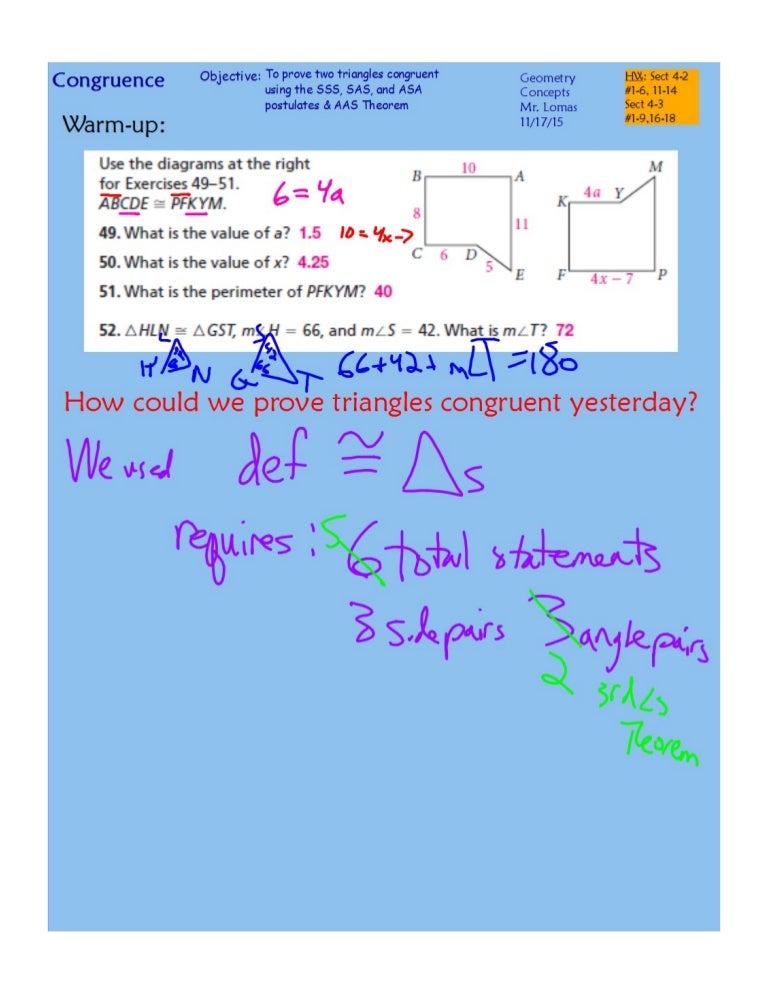 Congruence
Objective: To prove two triangles congruent
using the SSS, SAS, and ASA
postulates & AAS Theorem
Geometry
Concepts
Mr. Lomas
11/17/15
HW: Sect 4-2
#1-6, 11-14
Sect 4-3
#1-9,16-18
Warm-up:
Use the diagrams at the right
for Exercises 49–51.
ABCDE ≅ PFKYM.
6 = 4a
49. What is the value of a? 1.5 10 = 4x - 7
50. What is the value of x? 4.25
51. What is the perimeter of PFKYM? 40
B 10 A
8
11
C 6 D
5
E
M
4a Y
K
F 4x – 7 P
52. △HLN ≅ △GST, m∠H = 66, and m∠S = 42. What is m∠T? 72
L
H N
S
42
66
G T
66+42+ m∠T = 180
How could we prove triangles congruent yesterday?
We used def ≅ △s
requires: 5 6 total statements
3 side pairs 3 angle pairs
2 3rd ∠s
Theorem